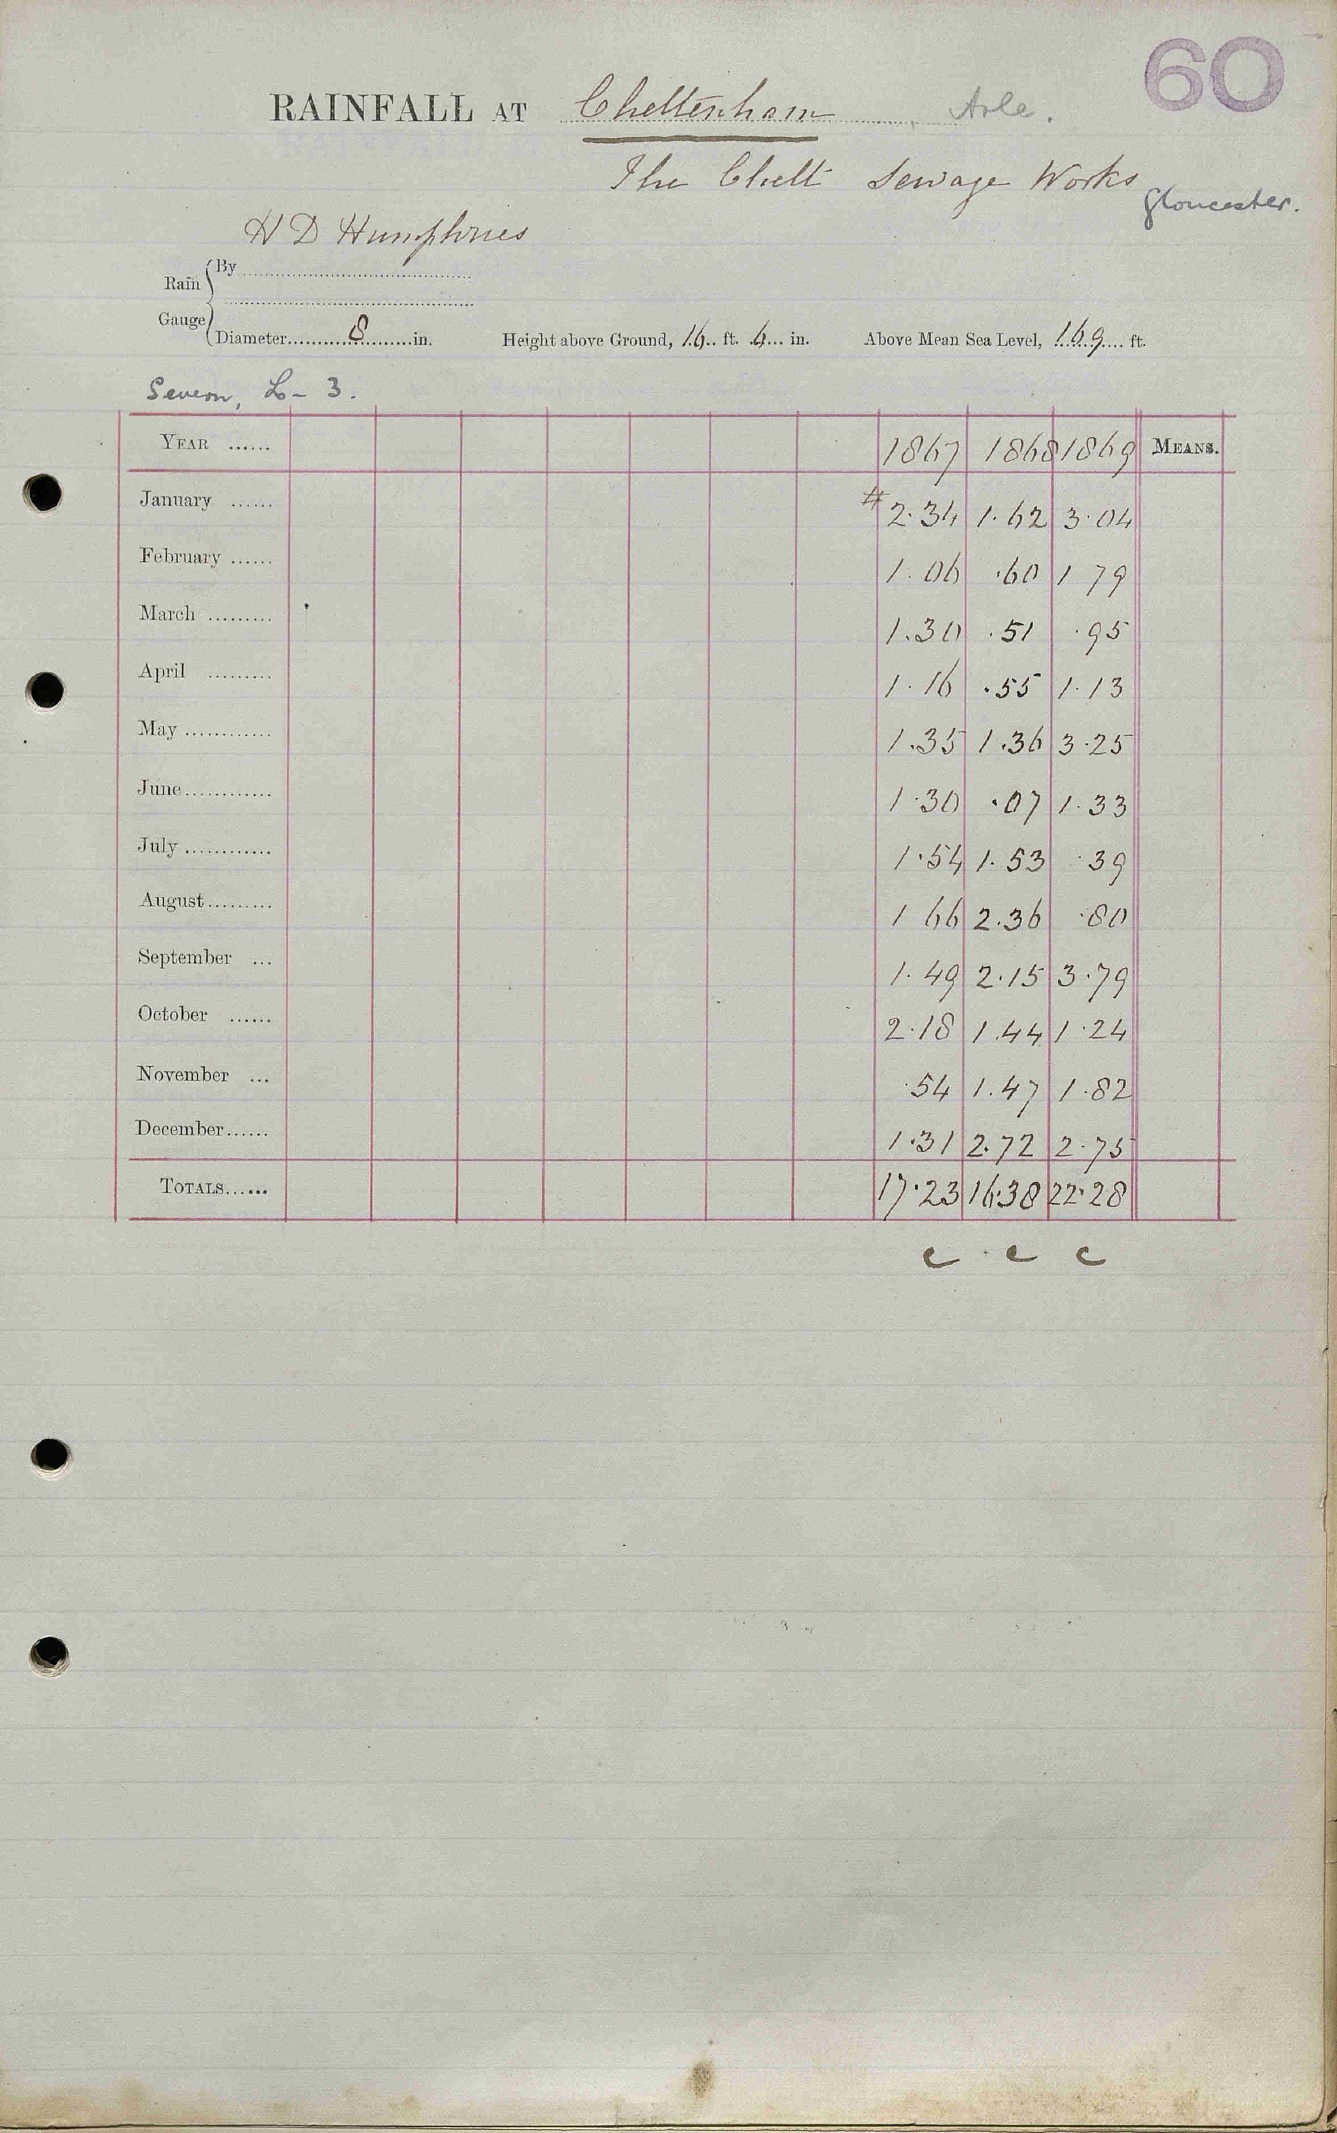 60
RAINFALL AT Cheltenham, Arle.
The Chelt Sewage Works
Gloucester.
H D Humphries
Rain Gauge
By
Diameter 8 in. Height above Ground, 16 ft. 6 in. Above Mean Sea Level, 169 ft.
Severn, L - 3.
YEAR ...... 1867 1868 1869 MEANS.
January ...... # 2.34 1.62 3.04
February ...... 1.06 .60 1 79
March ......... 1.30 .51 .95
April ......... 1.16 .55 1.13
May ............ 1.35 1.36 3.25
June ............ 1.30 .07 1.33
July ............ 1.54 1.53 .39
August ......... 1 66 2.36 .80
September ... 1.49 2.15 3.79
October ...... 2.18 1.44 1.24
November ... .54 1.47 1.82
December ...... 1.31 2.72 2.75
TOTALS ...... 17.23 16.38 22.28
c c c